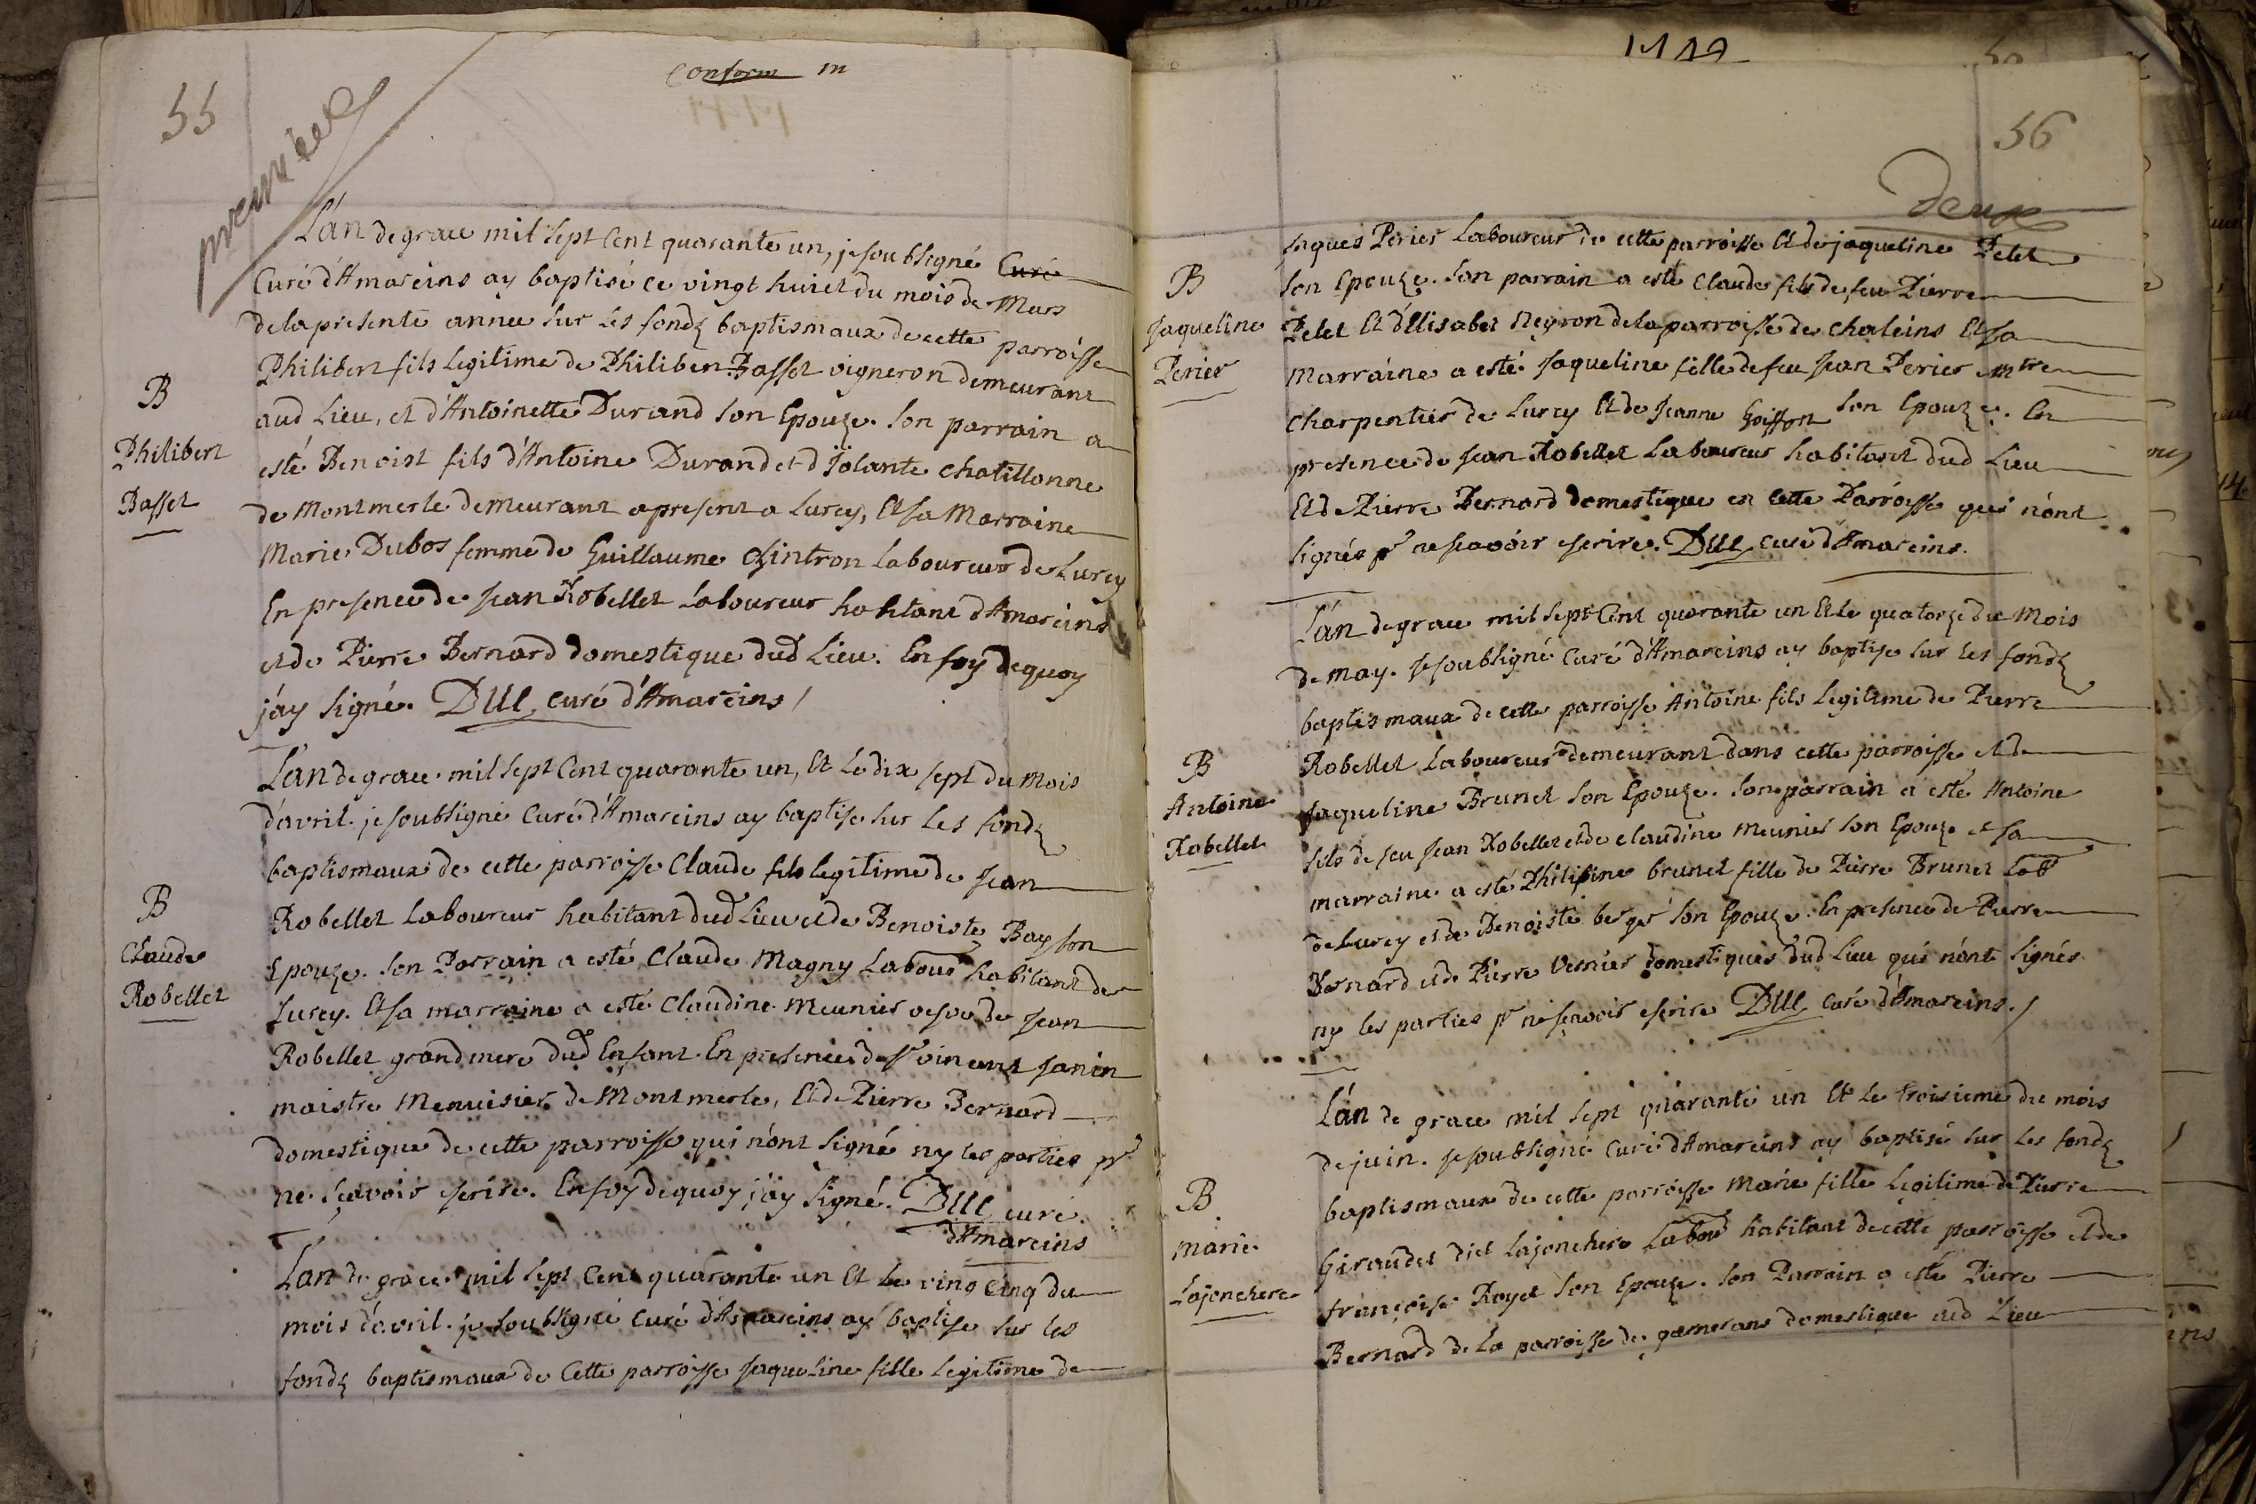 55
Conform in
premiere
L'an de grace mil sept cent quarante un, je soubsigné Curé
Curé d'Amareins ay baptisé ce vingt huict du mois de Mars
de la presente année sur les fondz baptismaux de cette parroisse
Philibert fils legitime de Philibert Basset vigneron demeurant
aud Lieu, et d'Antoinette Durand son Epouze. Son parrain a
esté Benoist fils d'Antoine Durand et d'Jolante chatillonne
de Montmerle demeurant apresent a Lurcy, Et sa Marraine
Marie Dubos femme de Guillaume Cintron Laboureur de Lurcy
En presence de Jean Robellet Laboureur habitant d'Amareins
et de Pierre Bernard domestique dud Lieu. En foy dequoy
j'ay signé. DUC curé d'Amareins /
B
Philibert
Basset
L'an de grace mil sept Cent quarante un, Et le dix sept du Mois
d'avril. je soubsigné Curé d'Amareins ay baptise sur les fondz
baptismaux de cette parroisse Claude fils legitime de Jean
Robellet Laboureur habitant dud Lieu et de Benoiste Bay son
Epouze. Son Parrain a esté Claude Magny Labour habitant de
Lurcy. Et sa marraine a esté Claudine Meunier vefve de Jean
Robellet grand mere dud Enfant. En presence de sr vincent Janin
maistre Menuisier de Montmerle, Et de Pierre Bernard
domestique de cette parroisse qui n'ont signé ny les parties pr
ne scavoir escrire. En foy dequoy j'ay signé. DUC curé
d'Amareins
B
Claude
Robellet
L'an de grace mil sept Cent quarante un Et le vingt cinq du
mois d'avril. je soubsigné Curé d'Amareins ay baptise sur les
fondz baptismaux de Cette parroisse Jaqueline fille legitime de
56
deux
Jaques Perier Laboureur de cette parroisse Et de jaqueline Pelet
son Epouze. Son parrain a esté Claude fils de feu Pierre
Pelet Et d'Elisabet Negron de la parroisse de Chaleins Et sa
Marraine a esté Jaqueline fille de feu Jean Perier mtre
Charpentier de Lurcy Et de Jeanne Goiffon son Epouze. En
presence de Jean Robellet Laboureur habitant dud Lieu
Et de Pierre Bernard domestique en Cette Parroisse qui n'ont
signés pr ne scavoir escrire. DUC curé d'Amareins.
B
Jaqueline
Perier
L'an de grace mil sept Cent quarante un Et le quatorze du Mois
de may. Je soubsigné Curé d'Amareins ay baptise sur les fondz
baptismaux de cette parroisse Antoine fils legitime de Pierre
Robellet Laboureur demeurant dans cette parroisse et de
Jaqueline Brunet son Epouze. Son parrain a esté Antoine
fils de feu Jean Robellet et de Claudine Meunier son Epouze et sa
marraine a esté Philipine brunet fille de Pierre Brunet Labr
de Lurcy et de Benoiste berger son Epouze. En presence de Pierre
Bernard et de Pierre Vernier domestiques dud Lieu qui n'ont signés
ny les parties pr ne scavoir escrire DUC curé d'Amareins. /
B
Antoine
Robellet
L'an de grace mil sept quarante un Et le troisieme du mois
de juin. Je soubsigné Curé d'Amareins ay baptisé sur les fondz
baptismaux de cette parroisse Marie fille Legitime de Pierre
Giraudet dict Lajonchere Labour habitant de cette parroisse et de
françoise Royet son Epouze. Son Parrain a esté Pierre
Bernard de la parroisse de garnerans domestique aud Lieu
B
Marie
Lajonchere